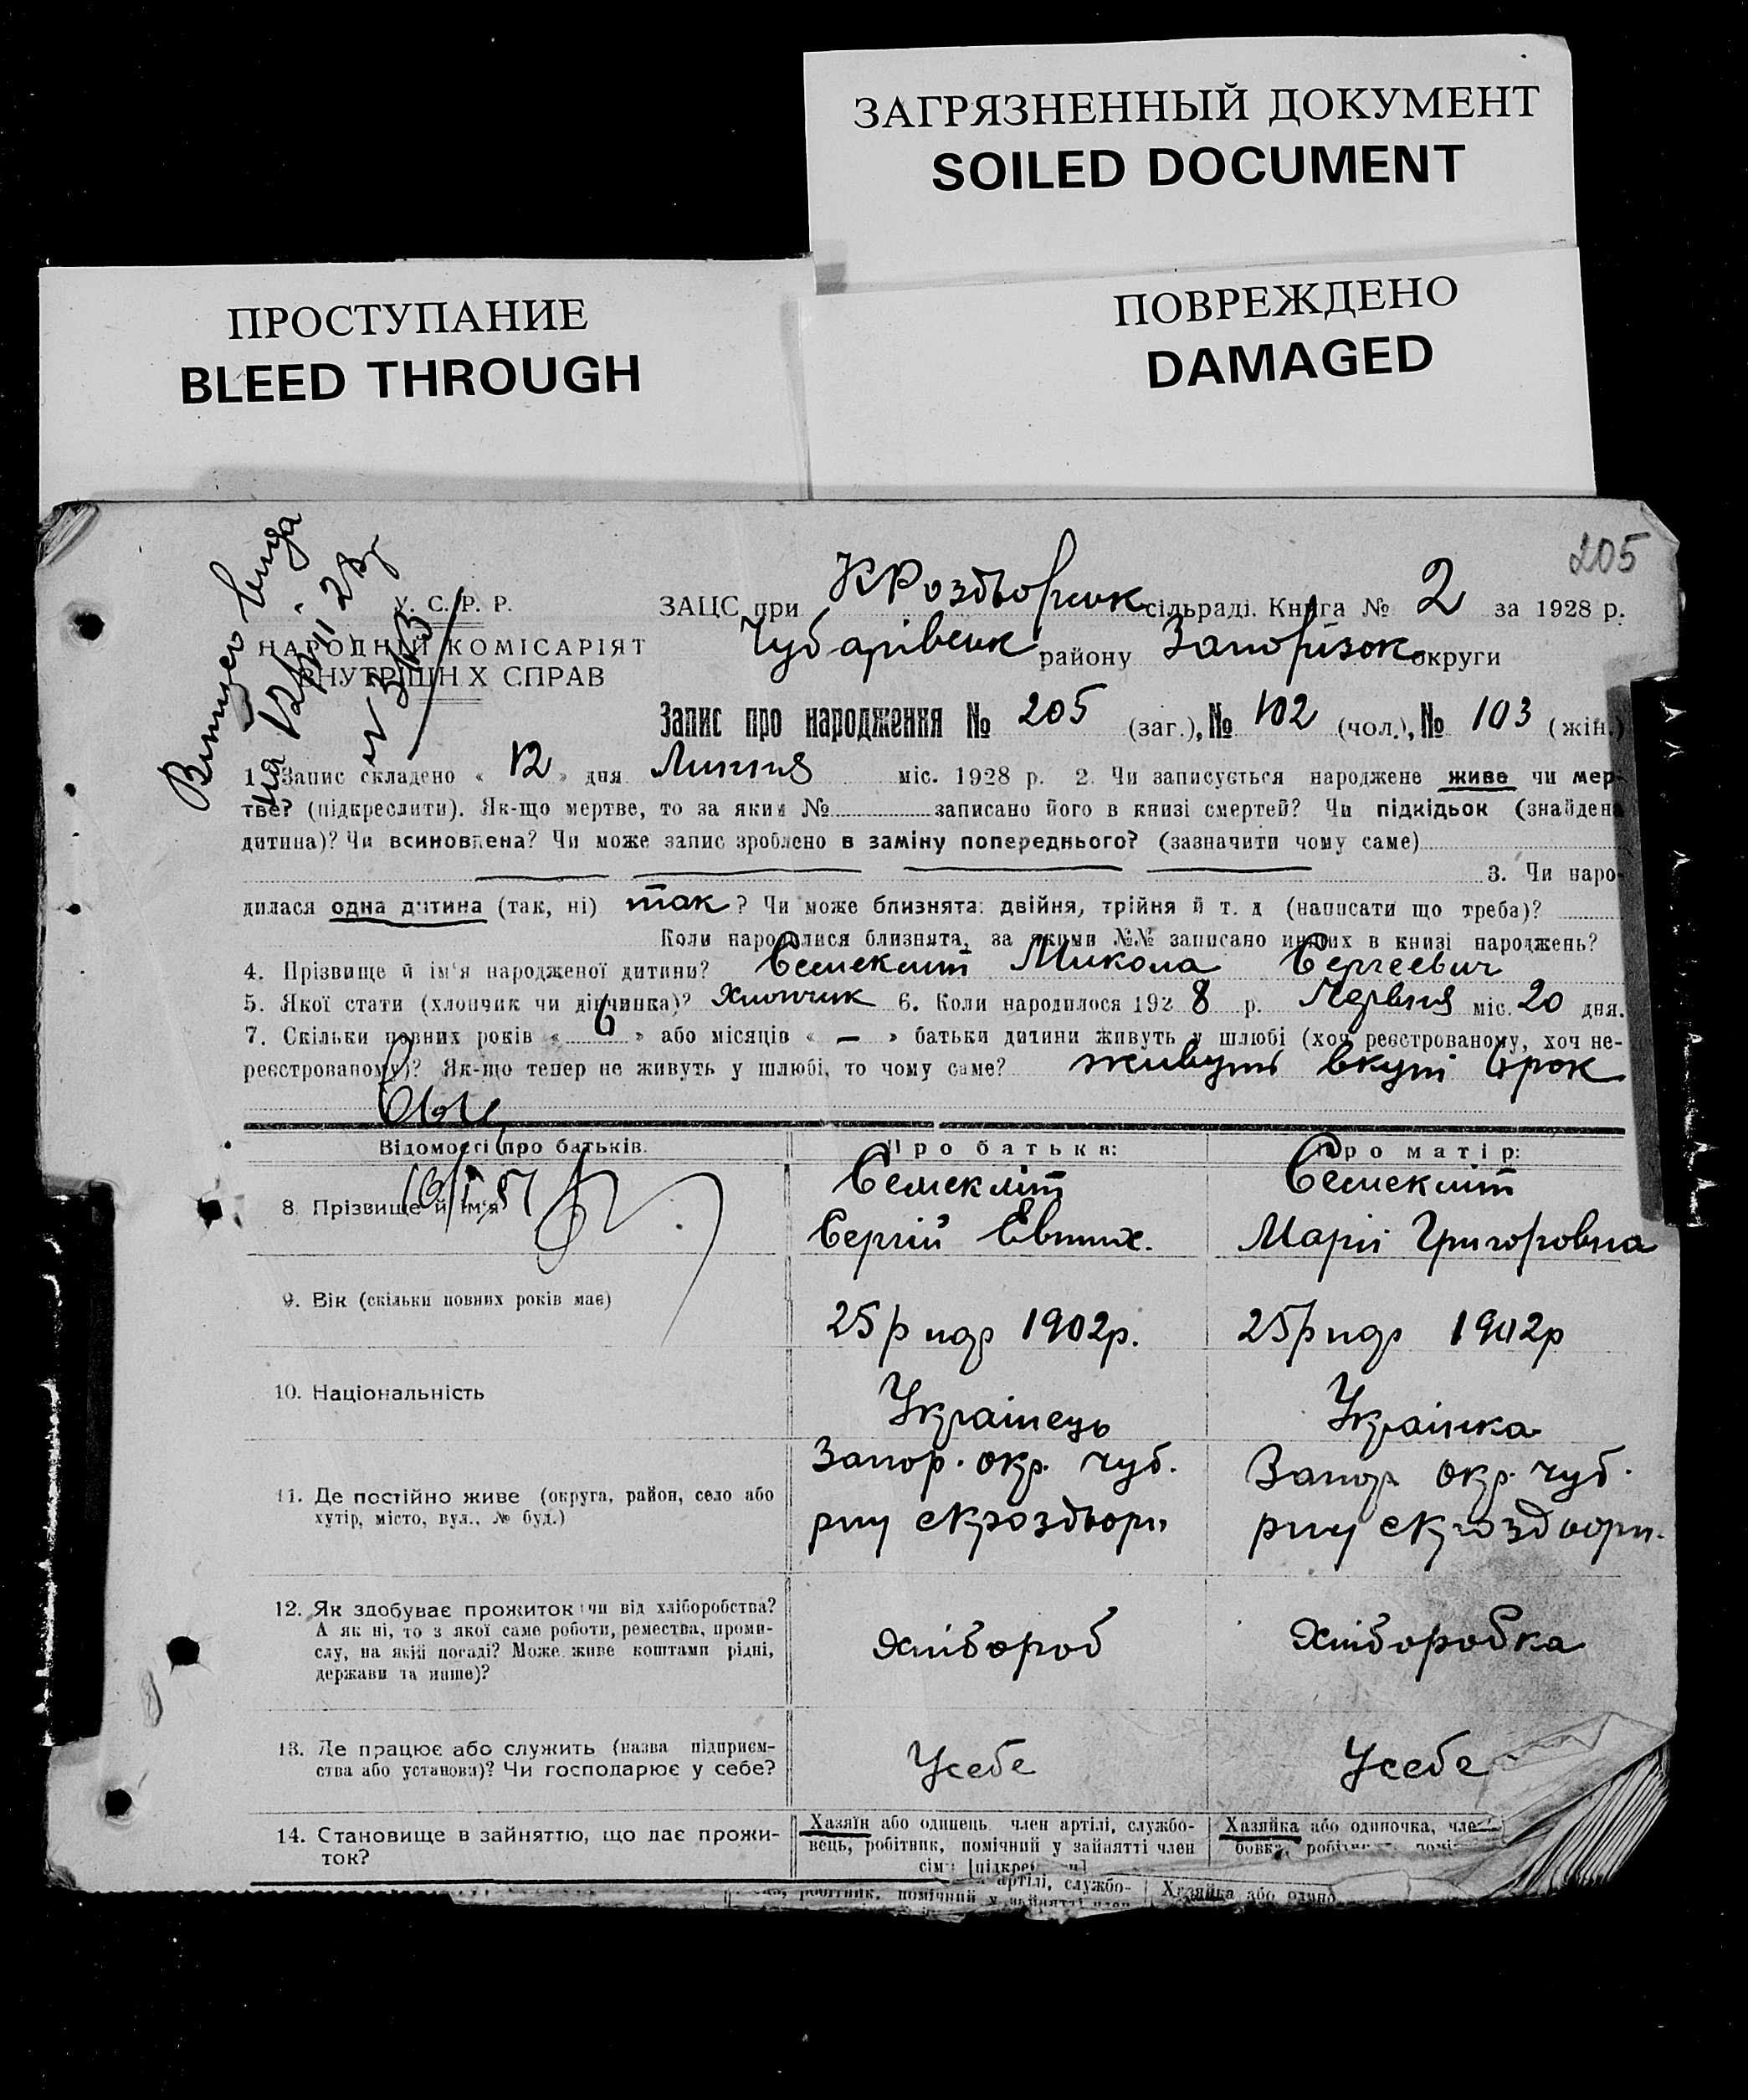 ЗАГРЯЗНЕННЫЙ ДОКУМЕНТ
SOILED DOCUMENT
ПРОСТУПАНИЕ
BLEED THROUGH
ПОВРЕЖДЕНО
DAMAGED
205
У. С. Р. Р.
НАРОДНИЙ КОМІСАРІЯТ
ВНУТРІШН Х СПРАВ
ЗАЦС при КРоздорськ сільраді. Книга № 2 за 1928 р.
Чубарівськ району Запорізок округи
Запис про народження № 205 (заг.), № 102 (чол.), № 103 (жін.)
1. Запис складено « 12 » дня Липня міс. 1928 р. 2. Чи записується народжене живе чи мер-
тве? (підкреслити). Як-що мертве, то за яким № записано його в книзі смертей? Чи підкідьок (знайдена
дитина)? Чи всиновлена? Чи може запис зроблено в заміну попереднього? (зазначити чому саме)
3. Чи наро-
дилася одна дитина (так, ні) так? Чи може близнята: двійня, трійня й т. д (написати що треба)?
Коли народилися близнята, за якими №№ записано инших в книзі народжень?
4. Прізвище й ім'я народженої дитини? Семекліт Микола Сергеевич
5. Якої стати (хлопчик чи дівчинка)? Хлопчик 6. Коли народилося 1928 р. Червня міс. 20 дня.
7. Скільки повних років « 6 » або місяців « — » батьки дитини живуть у шлюбі (хоч реєстрованому, хоч не-
реєстрованому)? Як-що тепер не живуть у шлюбі, то чому саме? живуть вкупі 6 рок
Відомості про батьків. Про батька: Про матір:
8. Прізвище й ім'я Семекліт Семекліт
Сергій Евтих. Марія Григоровна
9. Вік (скільки повних років має) 25 р 1902р. 25 р 1902р
10. Національність Українець Українка
11. Де постійно живе (округа, район, село або
хутір, місто, вул., № буд.)
Запор. окр. чуб. Запор окр. чуб.
12. Як здобуває прожиток: чи від хліборобства?
А як ні, то з якої саме роботи, ремества, проми-
слу, на якій посаді? Може живе коштами рідні,
держави та инше)?
Хлібороб Хліборобка
13. Де працює або служить (назва підприєм-
ства або установи)? Чи господарює у себе?
Усебе Усебе
14. Становище в зайняттю, що дає прожи-
ток?
Хазяїн або одинець, член артілі, службо-
вець, робітник, помічний у зайнятті член
Хазяйка або одиночка, чле